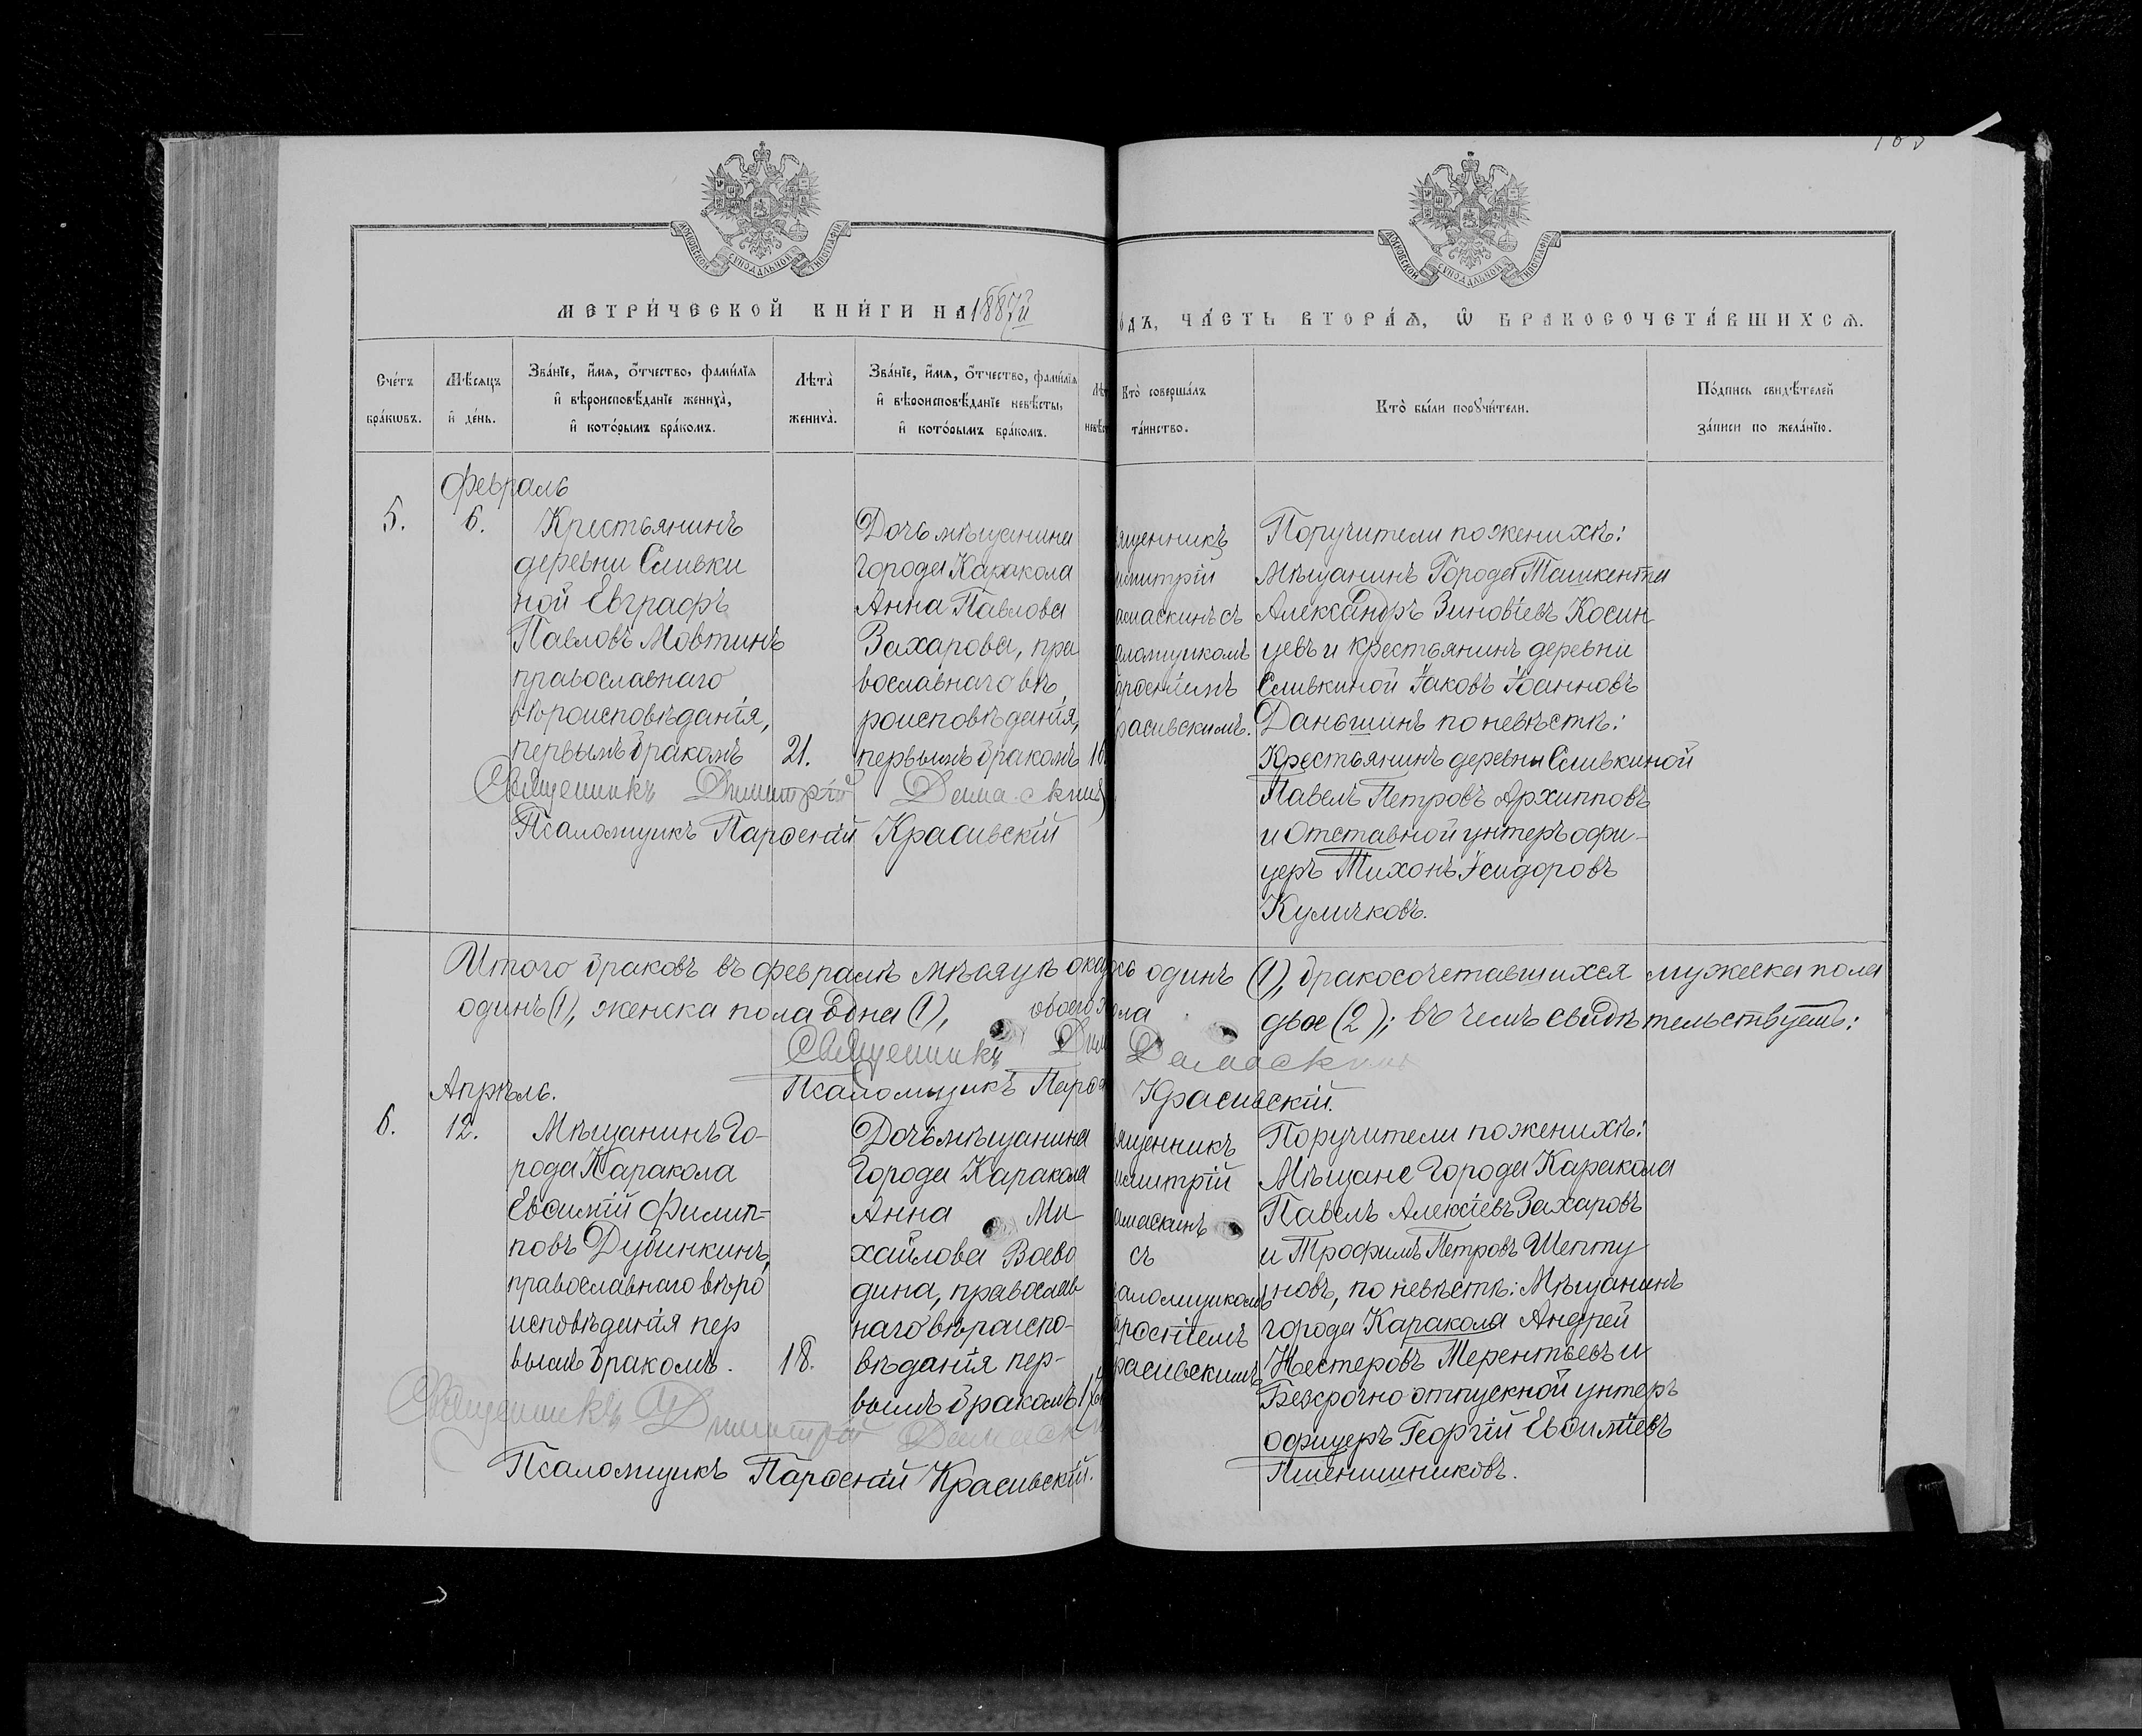 163
МОСКОВСКОЙ СѴНОДАЛЬНОЙ ТИПОГРАФІИ
МОСКОВСКОЙ СѴНОДАЛЬНОЙ ТИПОГРАФІИ
МЕТРИ́ЧЕСКОЙ КНИ́ГИ НА 1887й
ДЪ, ЧА́СТЬ ВТОРА́Ѧ, Ѽ БРАКОСОЧЕТА́ВШИХСѦ.
Сче́тъ бра́кωвъ.
Мѣ́сѧцъ и҆ де́нь.
Зва́нїе, и҆́мѧ, ѻ҆́тчество, фами́лїѧ
и҆ вѣроисповѣ́данїе жениха̀,
и҆ кото́рымъ бра́комъ.
Лѣта̀ жениха̀.
Зва́нїе, и҆́мѧ, ѻ҆́тчество, фами́лїѧ
и҆ вѣроисповѣ́данїе невѣ́сты,
и҆ кото́рымъ бра́комъ.
Лѣт
невѣс
Кто̀ соверша́лъ
та́инство.
Кто̀ бы́ли порꙋчи́тели.
По́дпись свидѣ́телей
за́писи по жела́нїю.
Февраль
5.
6.
Крестьянинъ
деревни Сливки
ной Евграфъ
Павловъ Мовтинъ
православнаго
вѣроисповѣданія,
первымъ бракомъ
21.
Дочь мѣщанина
города Каракола
Анна Павлова
Захарова, пра
вославнаго вѣ
роисповѣданія,
первымъ бракомъ
ященникъ
имитрій
амаскинъ съ
аломщикомъ
арѳеніемъ
расивскимъ.
Поручители по женихѣ:
Мѣщанинъ Города Ташкента
Александръ Зиновіевъ Косин
цевъ и крестьянинъ деревни
Сливкиной Іаковъ Іоанновъ
Даньшинъ по невѣстѣ:
Крестьянинъ деревны Сливкиной
Павелъ Петровъ Архипповъ
и Отставной унтеръ офи-
церъ Тихонъ Исидоровъ
Куличковъ.
Священникъ Димитрій Дамаскинъ
Псаломщикъ Парѳеній Красивскій
Итого браковъ въ февралѣ мѣсяцѣ ока сь одинъ (1), бракосочетавшихся мужеска пола
одинъ (1), женска пола одна (1), обоего пола двое (2); въ чемъ свидѣтельствуемъ:
Священникъ Дим Дамаскинъ
Псаломщикъ Парѳ Красивскій.
Апрѣль.
6.
12.
Мѣщанинъ Го-
рода Каракола
Евѳимій Филип=
повъ Дубинкинъ,
православнаго вѣро
исповѣданія пер
вымъ бракомъ.
18.
Дочь мѣщанина
Города Каракола
Анна Ми
хайлова Воево
дина, православ
наго вѣроиспо-
вѣданія пер-
вымъ бракомъ
ященникъ
имитрій
амаскинъ
съ
аломщикомъ
арѳеніемъ
расивскимъ
Поручители по женихѣ:
Мѣщане Города Каракола
Павелъ Алексіевъ Захаровъ
и Трофимъ Петровъ Шепту
новъ, по невѣстѣ: Мѣщанинъ
города Каракола Андрей
Нестеровъ Терентьевъ и
Безсрочно отпускной унтеръ
офицеръ Георгій Евѳиміевъ
Пшенишниковъ.
Священникъ Димитрій Дамаск
Псаломщикъ Парѳеній Красивскій.